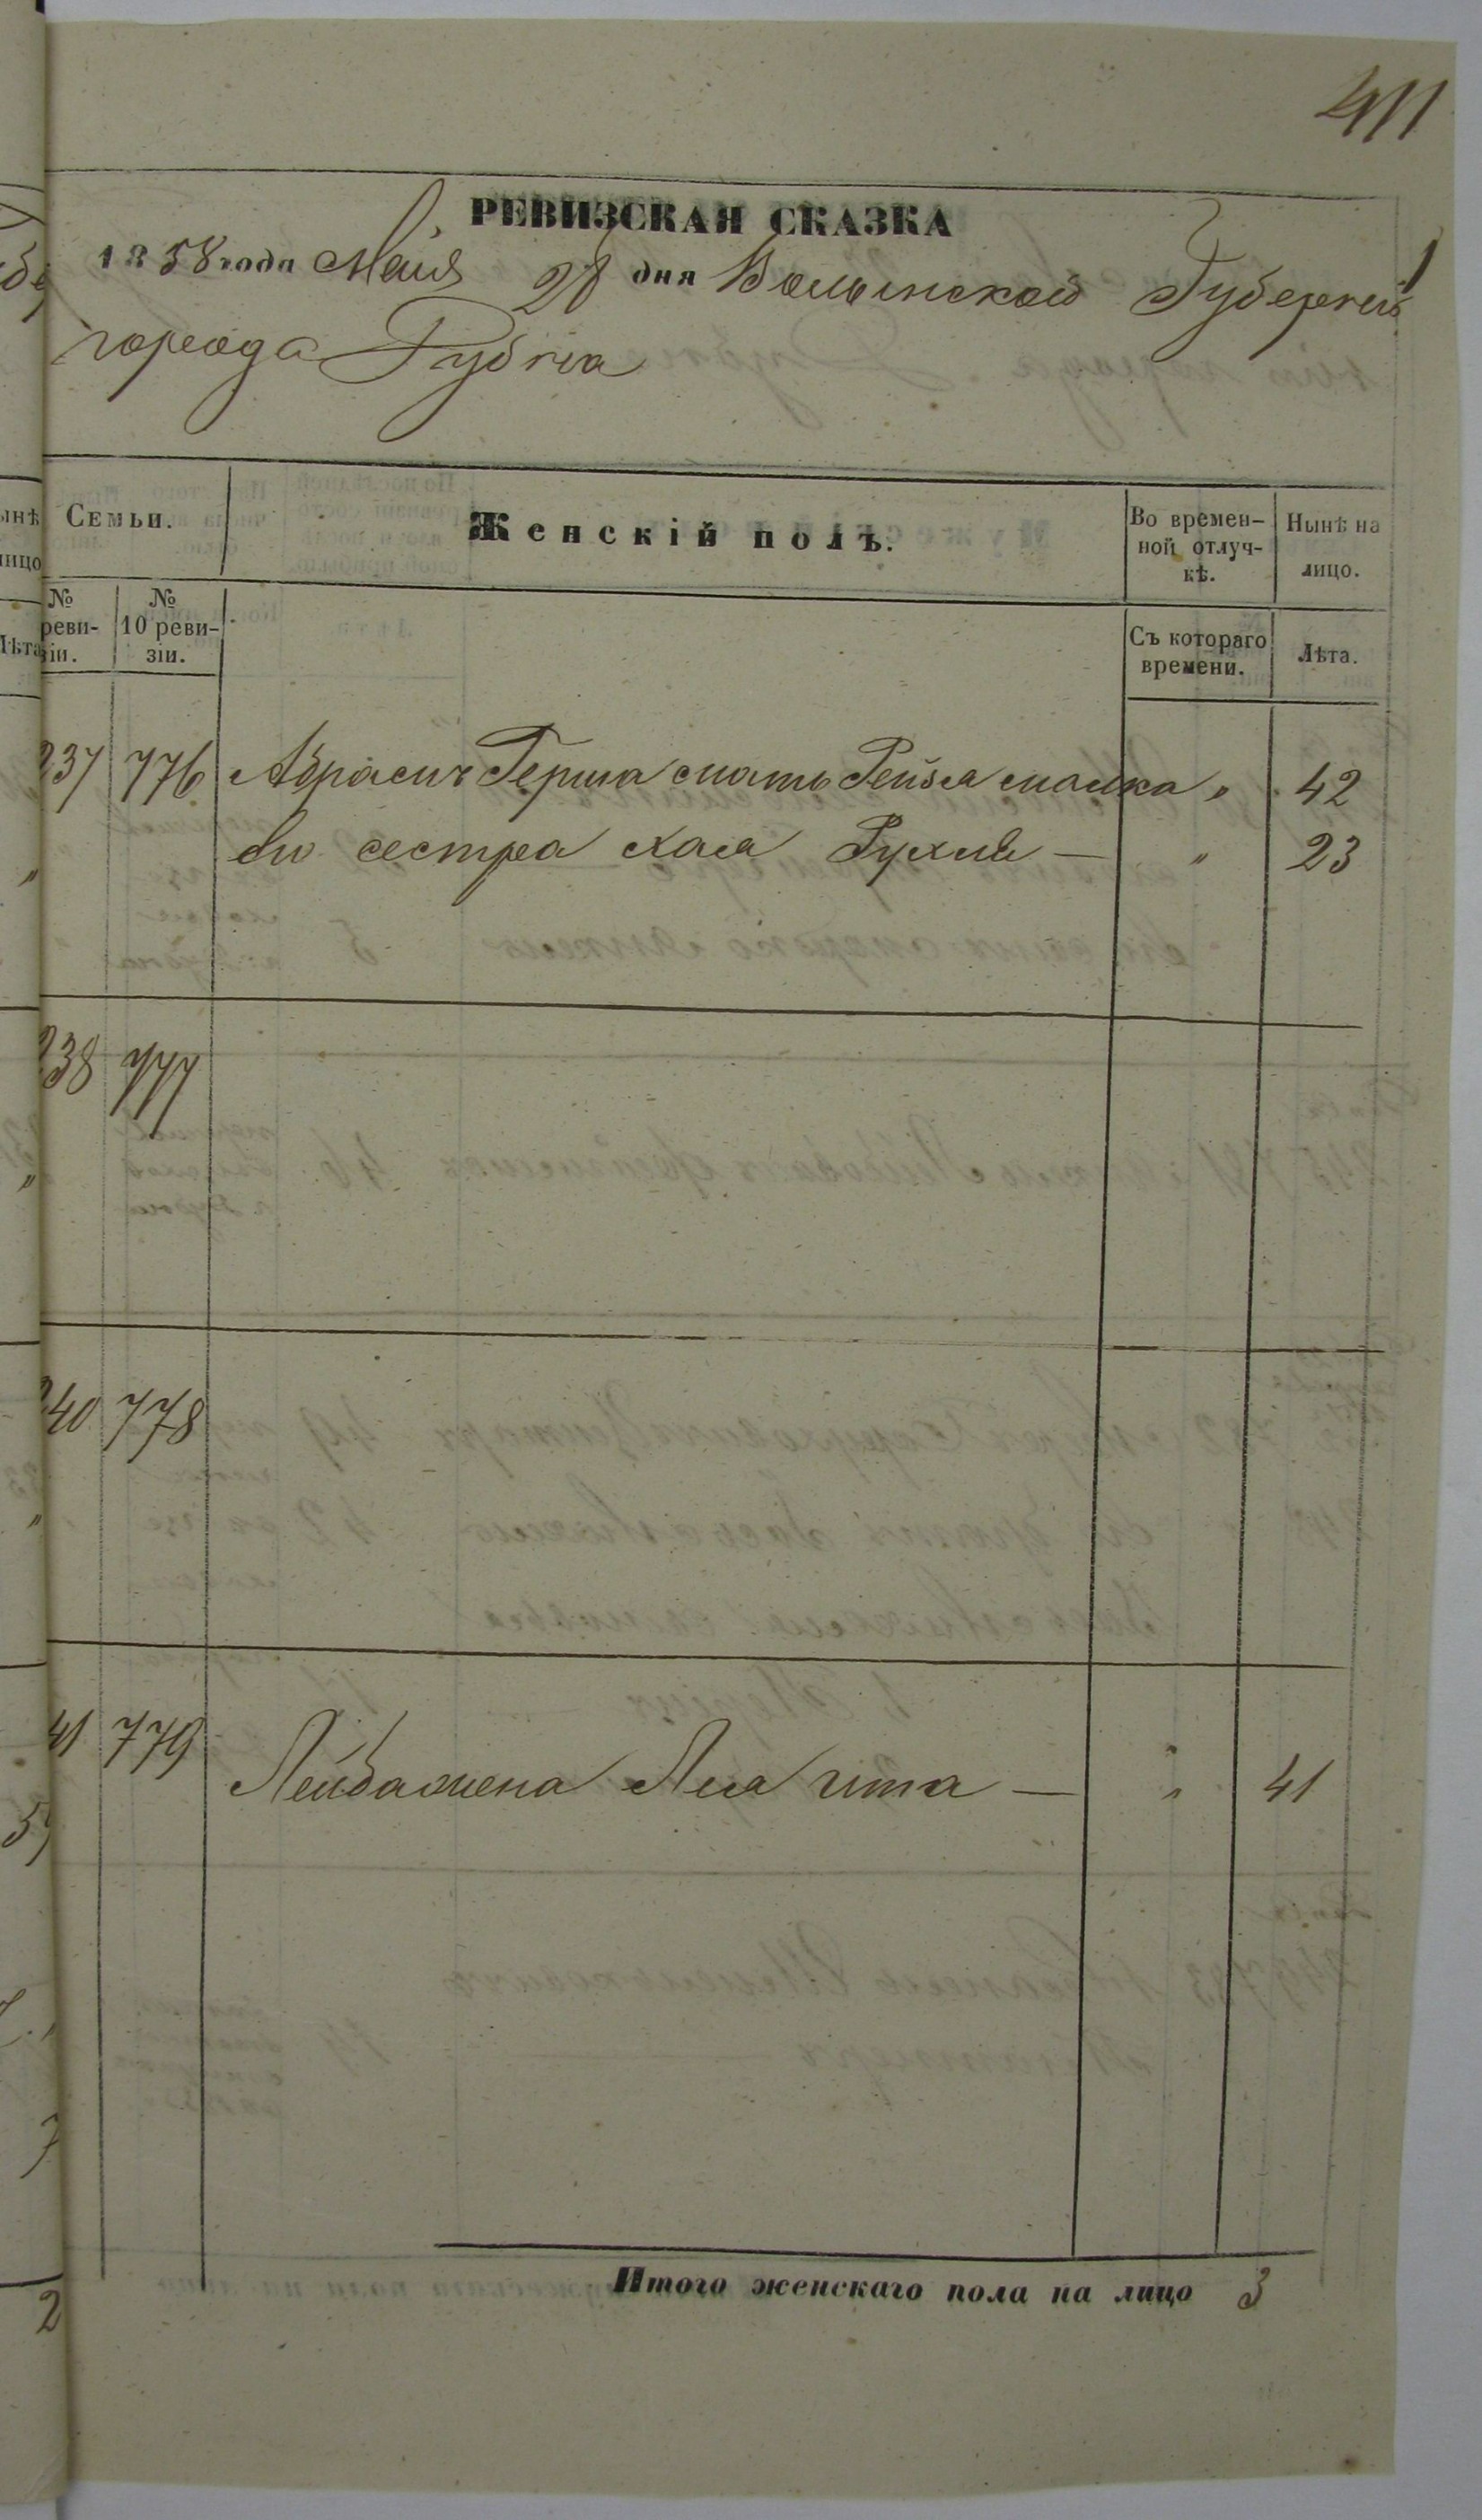 411
РЕВИЗСКАЯ СКАЗКА
1858 года Мая 28 дня Волынской Губернiи
города Дубна
Семьи.
Женскiй полъ.
Во времен-
ной отлуч-
кѣ.
Нынѣ на
лицо.
№
реви-
зiи.
№
10 реви-
зiи.
Съ котораго
времени.
Лѣта.
237 776 Абрамъ Герша мать Рейзя малка „ 42
его сестра хая Рухля — „ 23
238 777
240 778
41 779 Лейба жена Лея гитта — „ 41
Итого женскаго пола на лицо 3